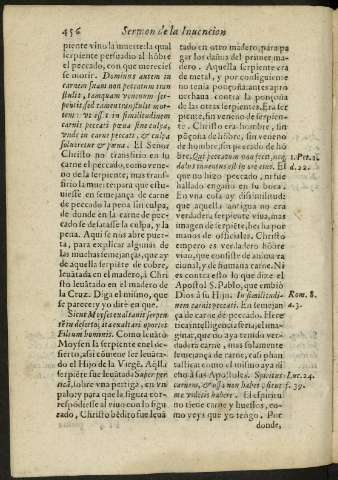 456 Sermon de la Inuencion
piente vino la muerte: la qual
serpiente persuadio al hõbre
el peccado, con que mereciesse
se morir. Dominus autem in
carnem suam non peccatum tran
stulit, tamquam venenum ser-
pentis, sed tamen transtulit mor-
tem: vt esset in similitudinem
carnis peccati pœna sine culpa,
vnde in carne peccati, & culpa
solueretur & pœna. El Señor
Christo no transfirio en su
carne el peccado, como vene-
no de la serpiente, mas trans-
firio la muerte para que estu-
uiesse en semejança de carne
de peccado la pena sin culpa,
de donde en la carne de pec-
cado se desatasse la culpa, y la
pena. Aqui se nos abre puer-
ta, para explicar algunas de
las muchas semejanças, que ay
de aquella serpiẽte de cobre,
leuãtada en el madero, â Chri
sto leuãtado en el madero de
la Cruz. Diga el mismo, que
se parece: y yo dire en que.
Sicut Moyses exaltauit serpen-
tẽ in deserto, ita exaltari oportet
Filium hominis. Como leuãtó
Moysen la serpiente en el de-
sierto, assi cõuiene ser leuãta-
do el Hijo de la Virgẽ. Aq̃lla
serpiẽte fue leuãtada Super per
ticã, sobre vna pertiga, en vn
palo: y para que la figura cor-
respõdiesse al viuo con lo figu
rado, Christo bẽdito fue leuã
tado en otro madero, para pa
gar los daños del primer ma-
dero. Aquella serpiente era
de metal, y por consiguiente
no tenia ponçoña: antes apro
uechaua contra la ponçoña
de las otras serpientes. Era ser
piente, sin veneno de serpien-
te. Christo era hombre, sin
ponçoña de hõbre, sin veneno
de hombre, sin peccado de hõ
bre, Qui peccatum non fecit, nec
dolus inuentus est in ore eius. El
que no hizo peccado, ni fue
hallado engaño en su boca.
En vna cosa ay dissimilitud:
que aquella antigua no era
verdadera serpiente viua, mas
imagen de serpiẽte, hecha por
manos de officiales. Christo
empero es verdadero hõbre
viuo, que consiste de anima ra
cional, y de humana carne. Ni
es contra esto lo que dize el
Apostol S. Pablo, que embiò
Dios â su Hijo. In similitudi-
nem carnis peccati. En semejan
ça de carne de peccado. Here
tica intelligencia seria, el ima-
ginar, que no aya tenido ver-
dadera carne, mas solamente
semejança de carne, casi phan
tastica: como el mismo aya di
cho â sus Apostoles. Spiritus
carnem, & ossa non habet, sicut
me videtis habere. El espiritu
no tiene carne y huessos, co-
mo veys que yo tengo. Por
donde,
1. Pet. 2.
d. 22.
Rom. 8.
a. 3.
Luc. 24.
f. 39.